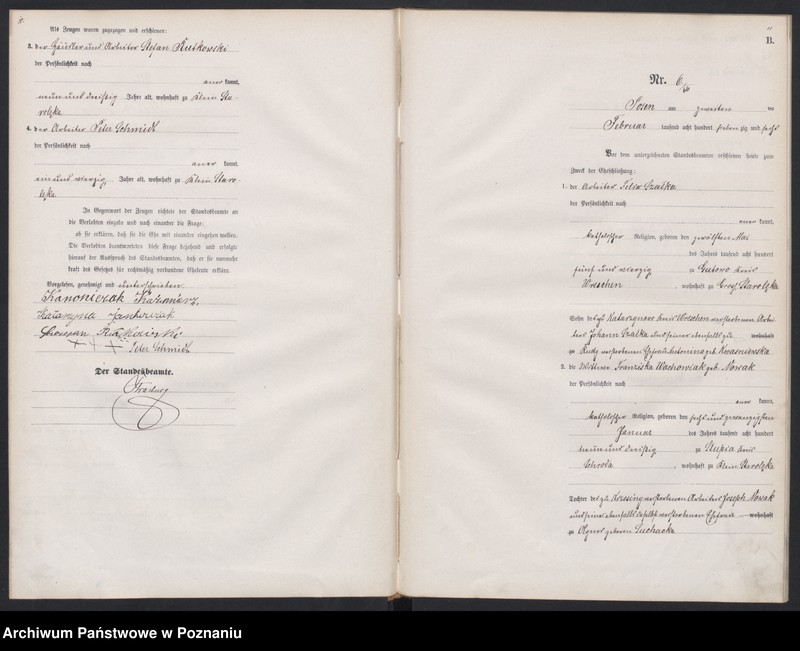 Als Zeugen waren zugezogen und erschienen:
3. der Häusler und Arbeiter Stefan Rutkowski
der Persönlichkeit nach
kannt,
neun und dreißig Jahre alt, wohnhaft zu Klein Sta-
rolęka
4. der Arbeiter Peter Schmidt
der Persönlichkeit nach
kannt,
ein und vierzig Jahre alt, wohnhaft zu Klein Staro-
lęka
In Gegenwart der Zeugen richtete der Standesbeamte an
die Verlobten einzeln und nach einander die Frage:
ob sie erklären, daß sie die Ehe mit einander eingehen wollen.
Die Verlobten beantworteten diese Frage bejahend und erfolgte
hierauf der Ausspruch des Standesbeamten, daß er sie nunmehr
kraft des Gesetzes für rechtmäßig verbundene Eheleute erkläre.
Vorgelesen, genehmigt und unterschrieben.
Kanoniczak Kazimierz
Katarzyna
+ + + Peter Schmidt
Der Standesbeamte.
B.
Nr. 6
Posen am zweiten
Februar tausend acht hundert siebenzig und sechs
Vor dem unterzeichneten Standesbeamten erschienen heute zum
Zweck der Eheschließung:
1. der Arbeiter Felix Szatka
der Persönlichkeit nach
kannt,
katholischer Religion, geboren den zwölften Mai
des Jahres tausend acht hundert
fünf und vierzig zu Gutowo Kreis
Wreschen, wohnhaft zu Groß Starolęka
Sohn des zu Katarzynowo Kreis Wreschen verstorbenen Arbei-
ters Johann Szatka und seiner ebenfalls zu wohnhaft
zu Ruda verstorbenen Ehefrau Antonina geb. Kwasniewska
2. die Wittwe Franziska Wachowiak geb. Nowak
der Persönlichkeit nach
kannt,
katholischer Religion, geboren den sechs und zwanzigsten
Januar des Jahres tausend acht hundert
neun und dreißig zu Slupia Kreis
Schroda, wohnhaft zu Klein Starolęka
Tochter des zu Krzesiny verstorbenen Arbeiters Joseph Nowak
und seiner ebenfalls daselbst verstorbenen Ehefrau wohnhaft
zu Agnes geborene Suchacka
Archiwum Państwowe w Poznaniu